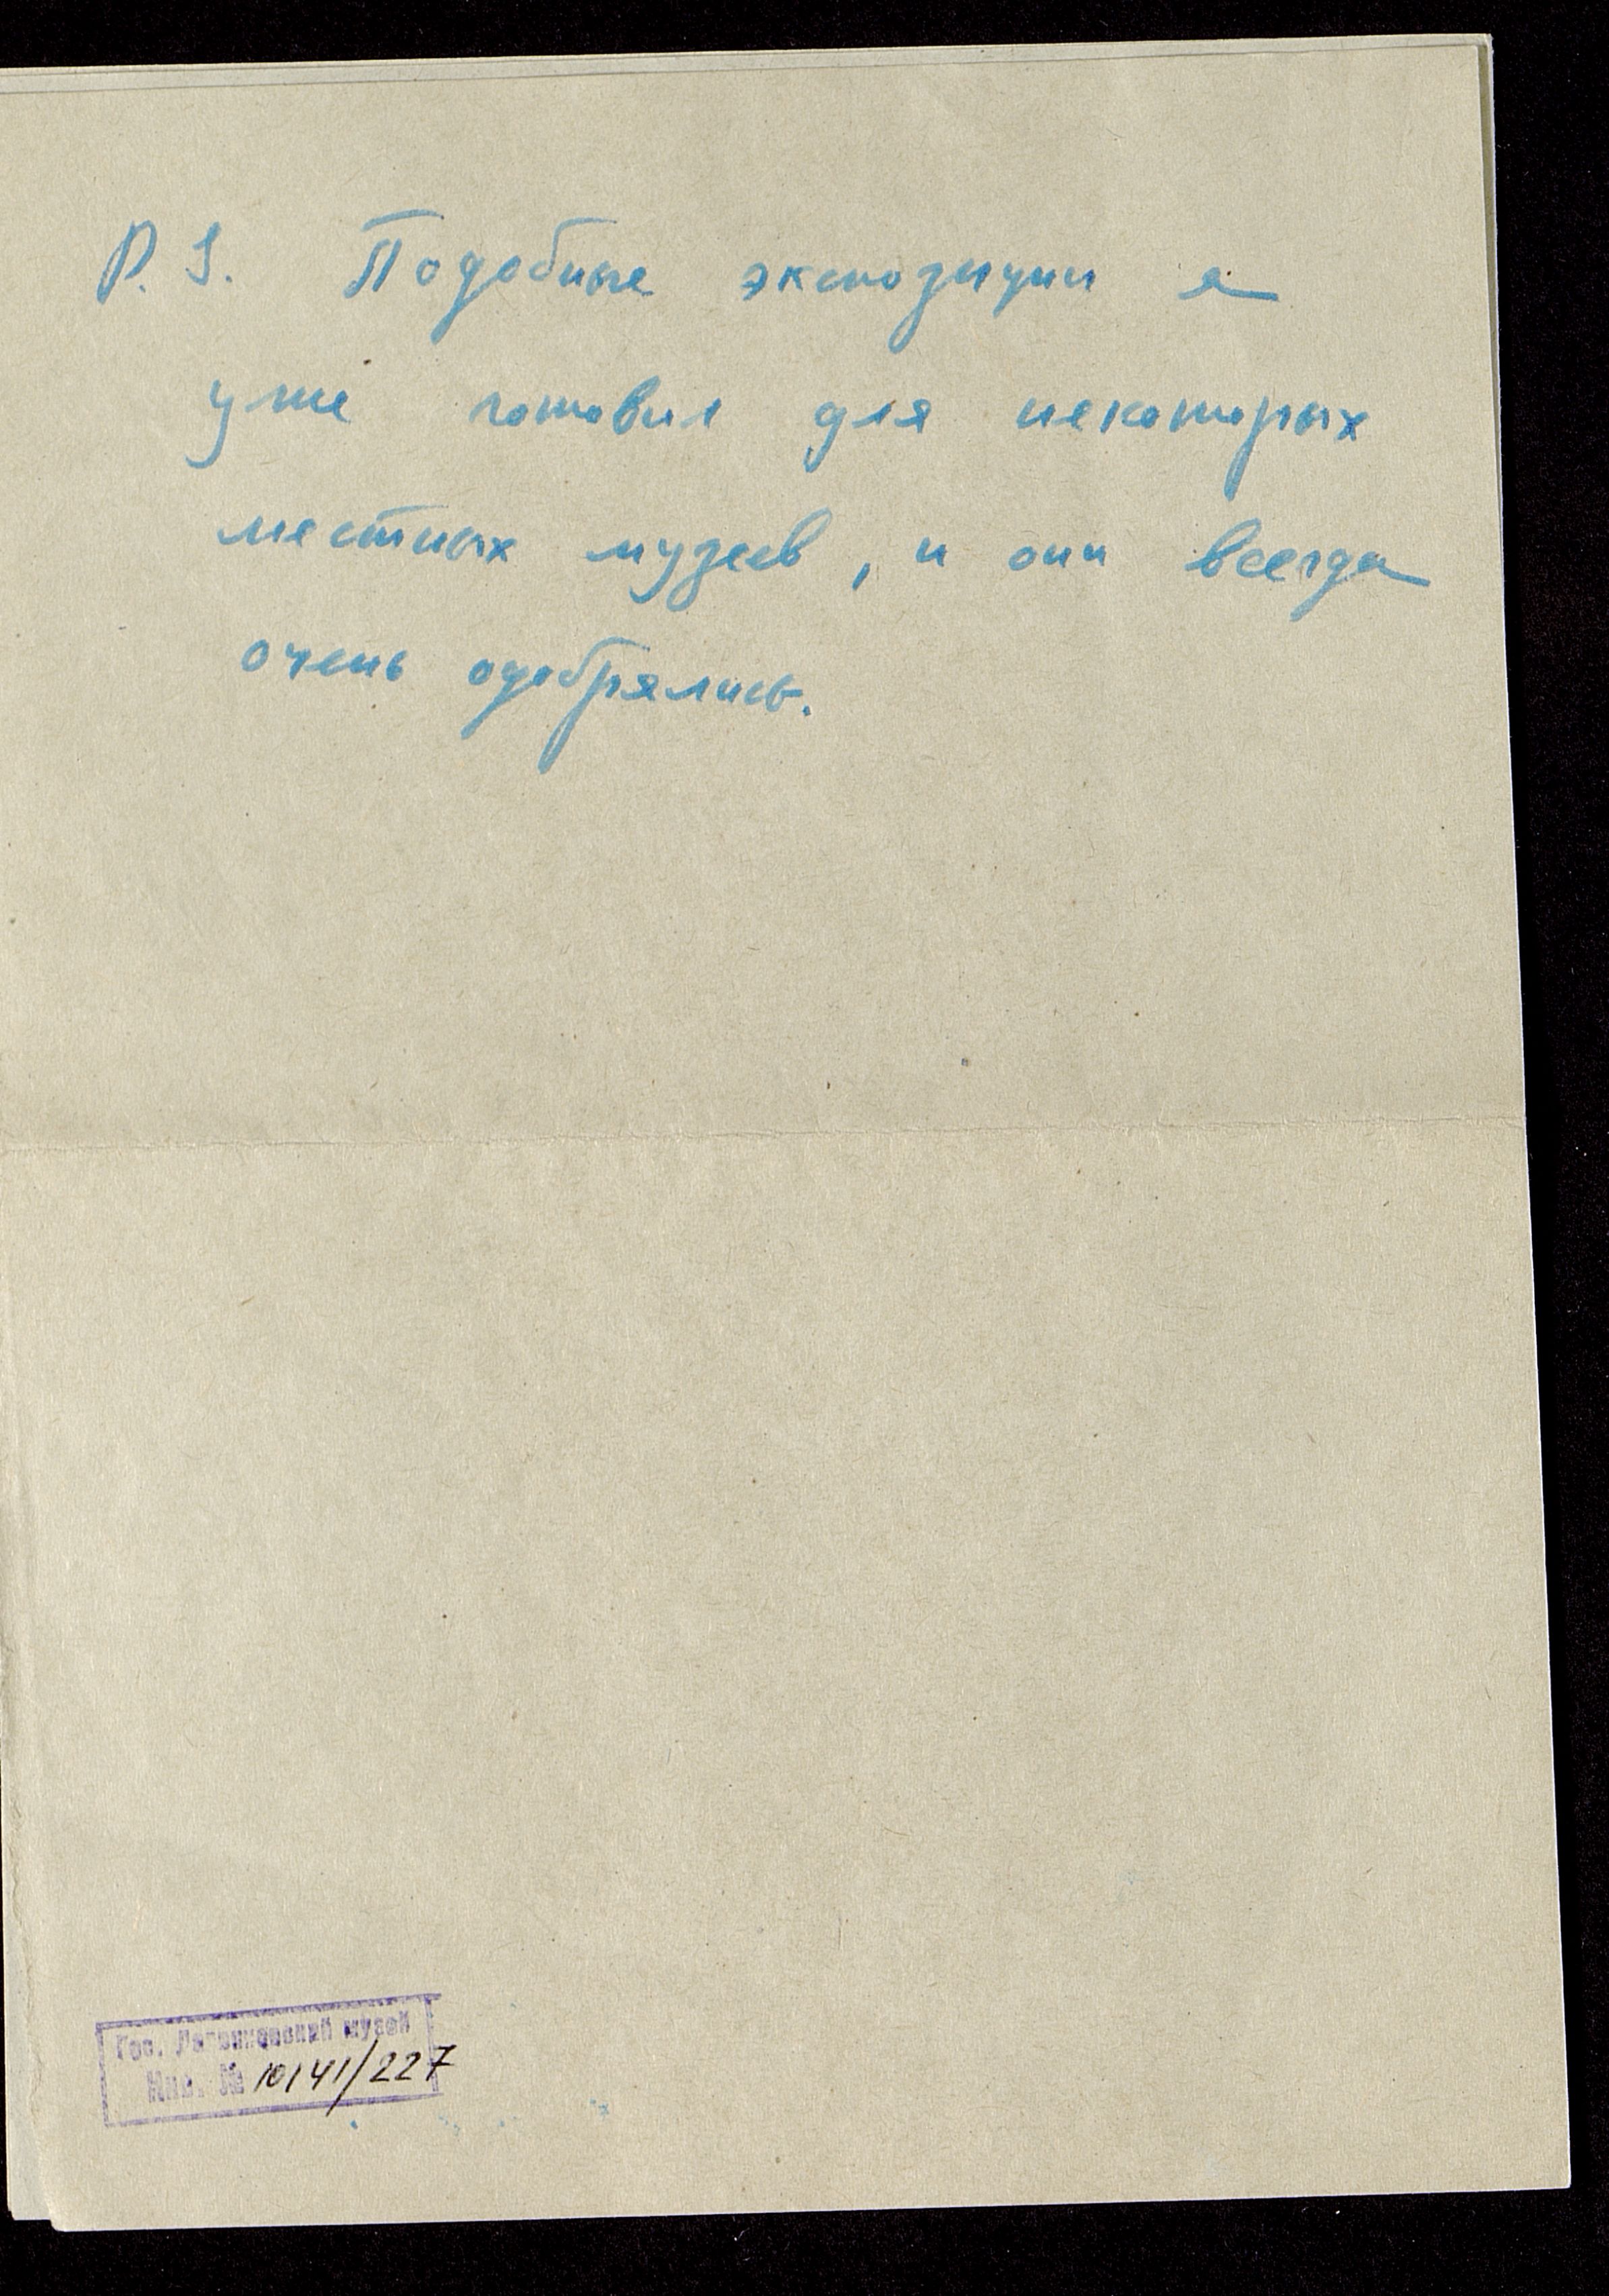 P.S. Подобные экспозиции я
уже готовил для некоторых
местных музеев, и они всегда
очень одобрялись.
Гос. Дарвиновский музей
Инв. № 10141/227